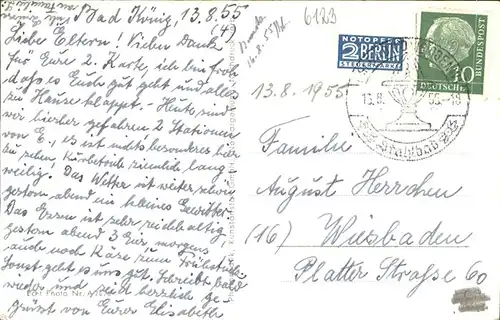 Bad König, 13.8.55
Liebe Eltern! Vielen Dank
für Eure 2. Karte, ich bin froh
dass es Euch gut geht und alles
zu Hause klappt. - Heute sind
wir hierher gefahren 2 Stationen
von E., es ist nichts besonderes hier
zu sehen, Kurbetrieb ziemlich lang-
weilig. Das Wetter ist weiter schön
gestern abend ein kleines Gewitter.
Das Essen ist sehr reichhaltig,
gestern abend 3 Eier, morgens
auch noch Käse zum Frühstück.
Sonst geht es uns gut. Schreibt bald
wieder und seid herzlich ge-
grüsst von Eurer Elisabeth
Echt Photo Nr.
6129
16.8.55
13.8.1955
NOTOPFER
2 BERLIN
STEUERMARKE
DEUTSCHE
BUNDESPOST
10
13.8.
55-18
Stahlbad
Familie
August Herrchen
(16) Wiesbaden
Platter Straße 60